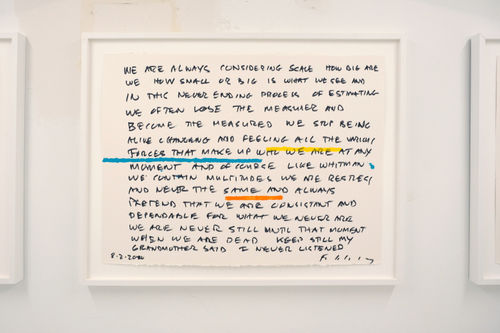 WE ARE ALWAYS CONSIDERING SCALE HOW BIG ARE
WE HOW SMALL OR BIG IS WHAT WE SEE AND
IN THIS NEVER ENDING PROCESS OF ESTIMATING
WE OFTEN LOSE THE MEASURER AND
BECOME THE MEASURED WE STOP BEING
ALIVE CHANGING AND FEELING ALL THE VARIOUS
FORCES THAT MAKE UP WHO WE ARE AT ANY
MOMENT AND OF COURSE LIKE WHITMAN
WE CONTAIN MULTITUDES WE ARE RESTLESS
AND NEVER THE SAME AND ALWAYS
PRETEND THAT WE ARE CONSISTANT AND
DEPENDABLE FOR WHAT WE NEVER ARE
WE ARE NEVER STILL UNTIL THAT MOMENT
WHEN WE ARE DEAD KEEP STILL MY
GRANDMOTHER SAID I NEVER LISTENED